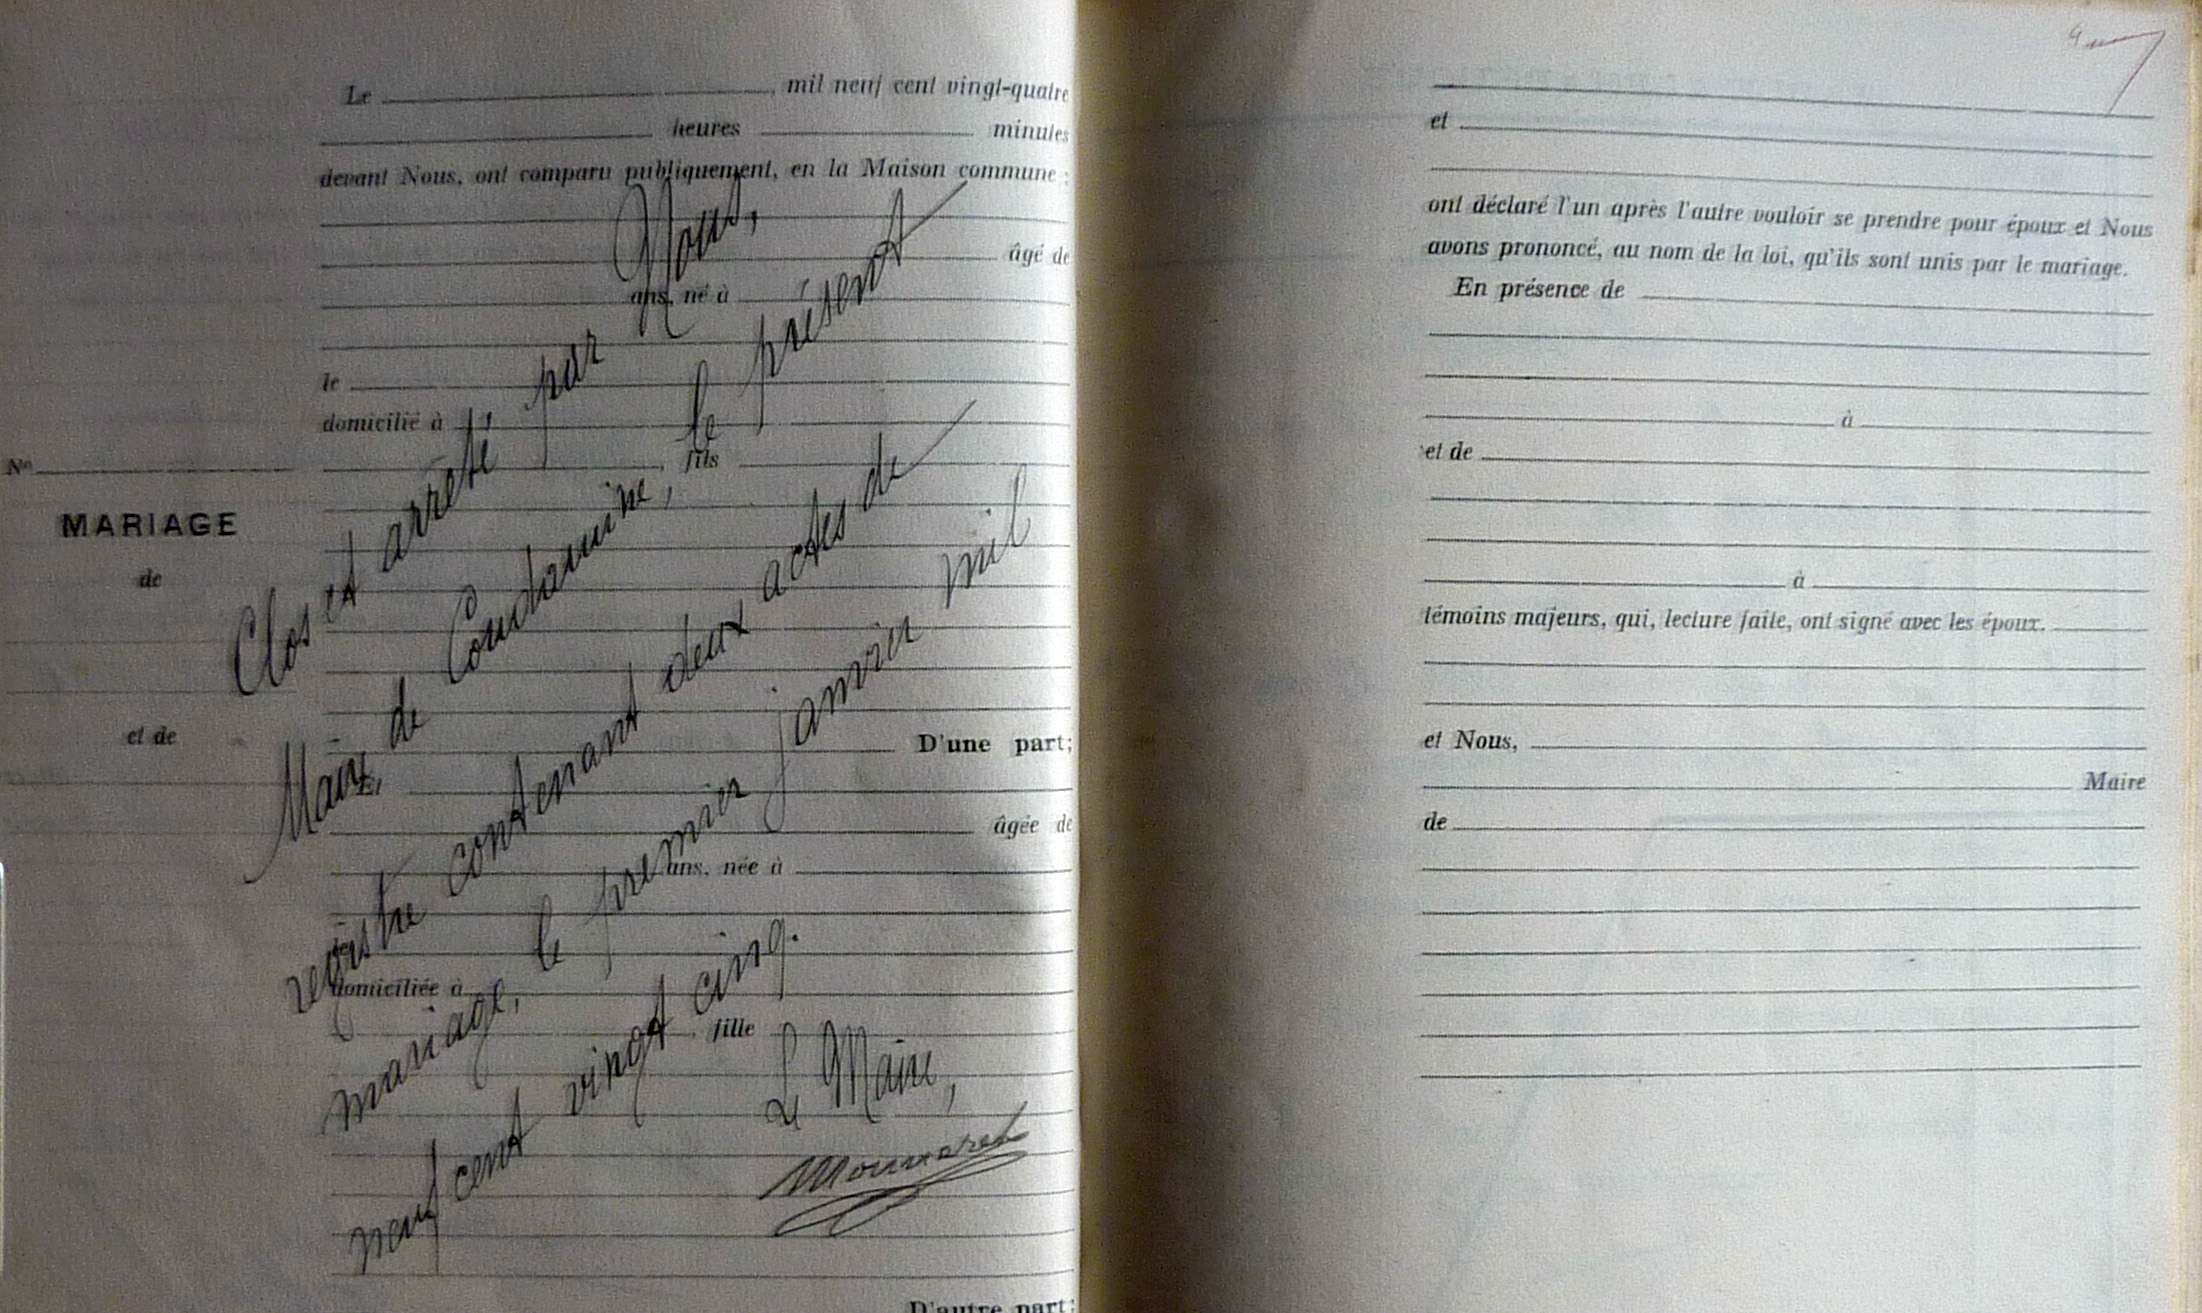 Le , mil neuf cent vingt-quatre
heures minutes
devant Nous, ont comparu publiquement, en la Maison commune :
âgé de
ans, né à
le
domicilié à
, fils
No
MARIAGE
de
et de
D'une part;
Et
âgée de
ans, née à
domiciliée à
, fille
D'autre part;
Clos et arrêté par Nous,
Maire de Condamine, le présent
registre contenant deux actes de
mariage, le premier janvier mil
neuf cent vingt cinq.
Le Maire,
et
ont déclaré l'un après l'autre vouloir se prendre pour époux et Nous
avons prononcé, au nom de la loi, qu'ils sont unis par le mariage.
En présence de
à
et de
à
témoins majeurs, qui, lecture faite, ont signé avec les époux.
et Nous,
Maire
de